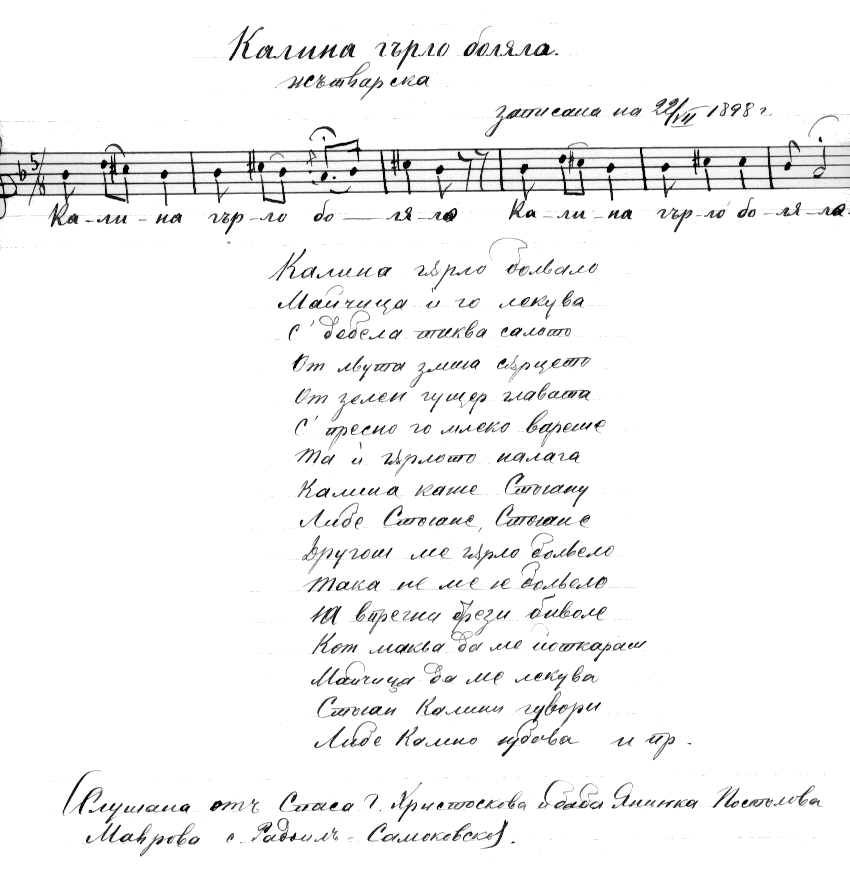 Калина гърло боляла.
жътварска
записана на 22/VII 1898 г.
5/8
Ка-ли-на гър-ло бо-ля-ла Ка-ли-на гър-ло бо-ля-ла.
Калина гърло болвало
Майчица ѝ го лекува
С' дебела тиква салото
От люта змия сърцето
От зелен гущер главата
С' пресно го млеко вареше
Та ѝ гърлото налага
Калина каже Стояну
Либе Стояне, Стояне
Другош ме гърло болѣло
Така не ме е болѣло
На впрегни брези биволе
Кот майка да ме йоткараш
Майчица да ме лекува
Стоян Калини гувори
Либе Калино хубава и пр.
(Слушана отъ Спаса Г. Христоскова и баба Янинка Постолова
Маврова с. Радоилъ - Самоковско).